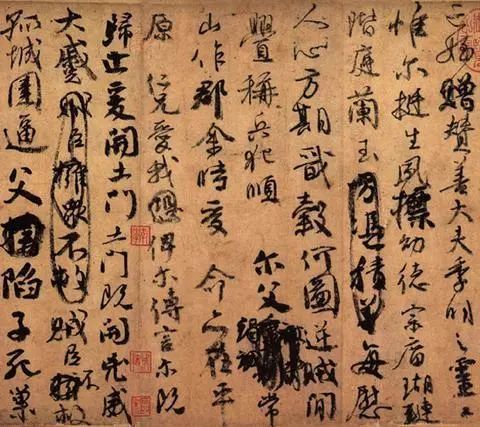 亡姪贈贊善大夫季明之靈曰
惟爾挺生夙標幼德宗廟瑚璉
階庭蘭玉方憑積善每慰
人心方期戩穀何圖逆賊閒
釁稱兵犯順爾父竭誠常
山作郡余時受命亦在平
原仁兄愛我恐俾爾傳言爾既
歸止爰開土門土門既開凶威
大蹙賊臣擁眾不救賊臣不救
孤城圍逼父陷子死巢